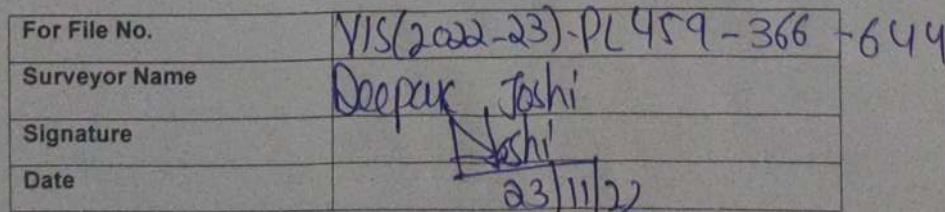 For File No. VIS(2022-23)-PL459-366-644
Surveyor Name Deepak Joshi
Signature Joshi
Date 23/11/22